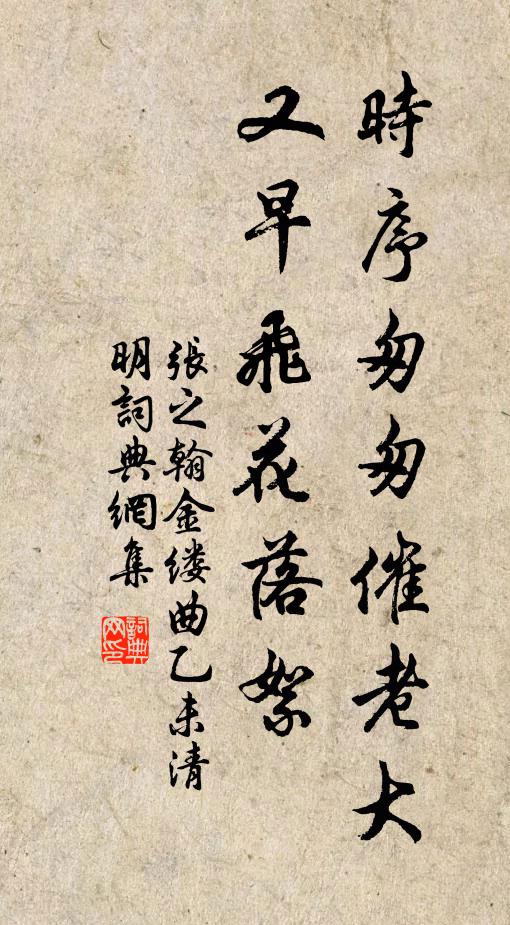 時序匆匆催老大
又早飛花落絮
張之翰金缕曲乙未清
明詞典網集
詞典網印